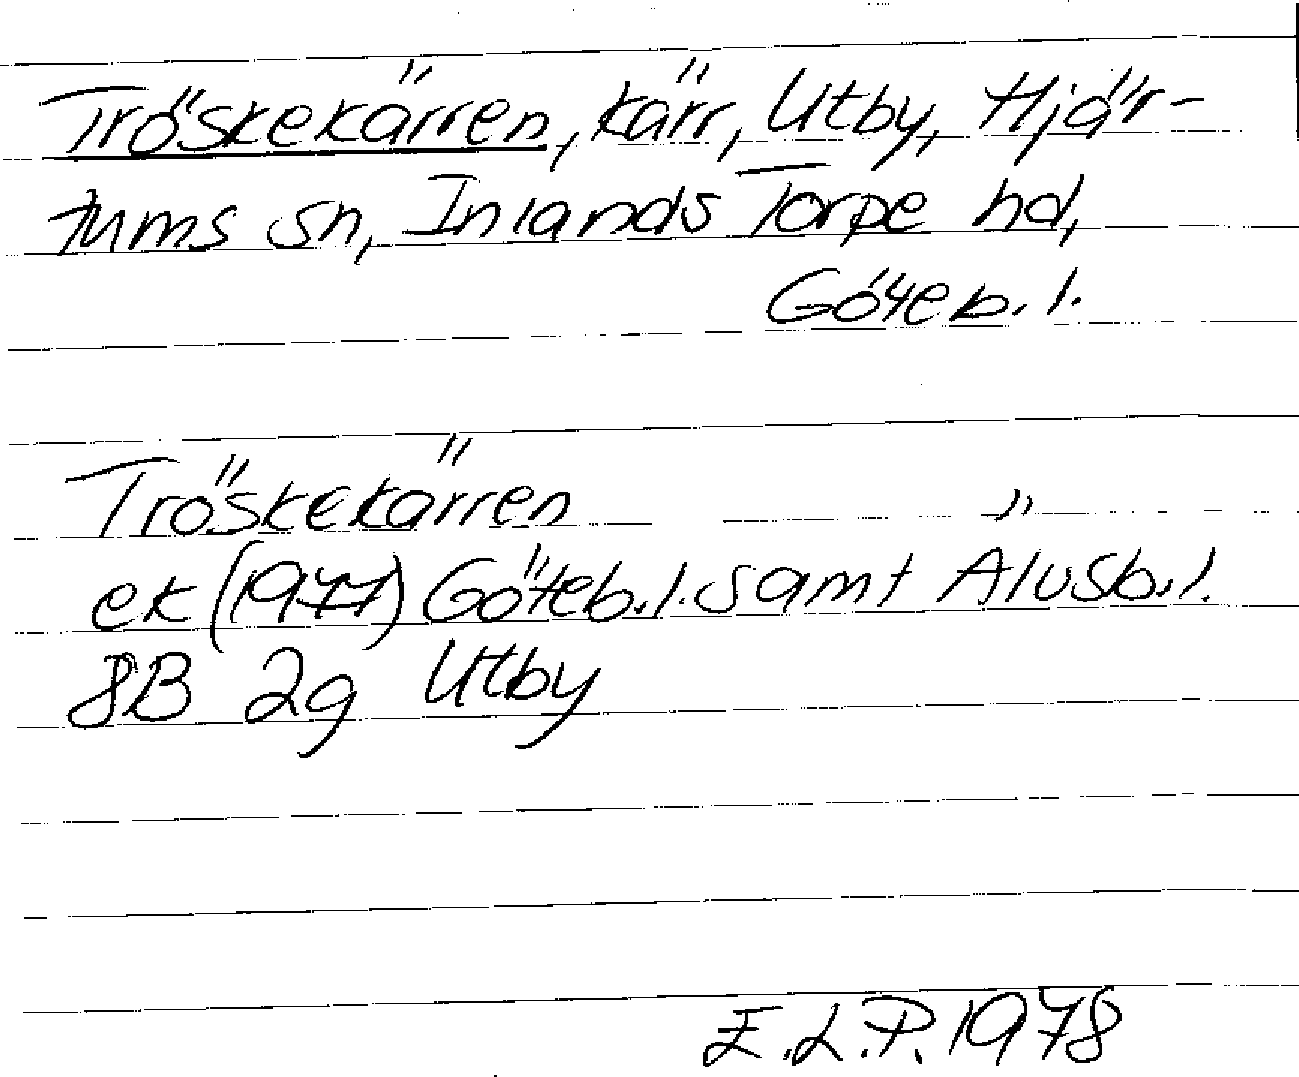 Tröskekärren, kärr, Utby, Hjär-
tums sn, Inlands Torpe hd,
Göteb. l.
Tröskekärren
ek (1977) Göteb. l. samt Älvsb. l.
8B 2g Utby
E.L.P. 1978